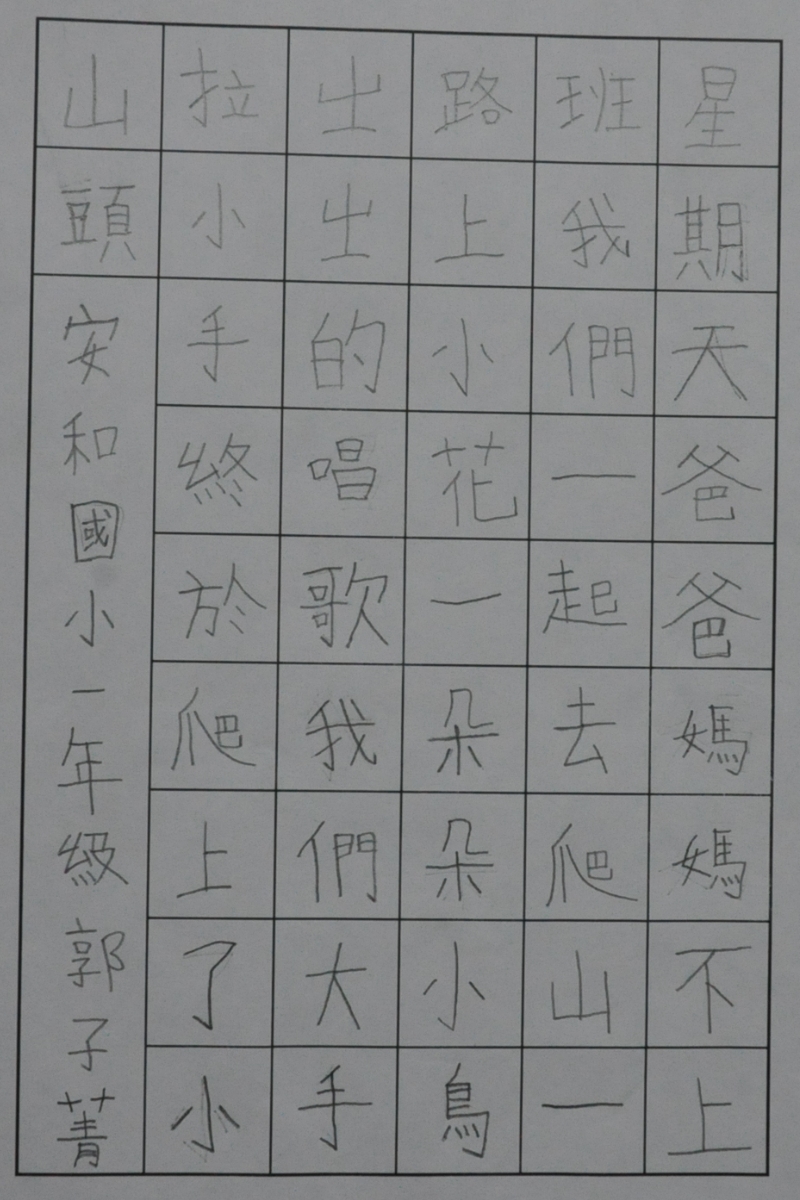 星期天爸爸媽媽不上
班我們一起去爬山一
路上小花一朵朵小鳥
出出的唱歌我們大手
拉小手終於爬上了小
山頭
安和國小一年級郭子菁